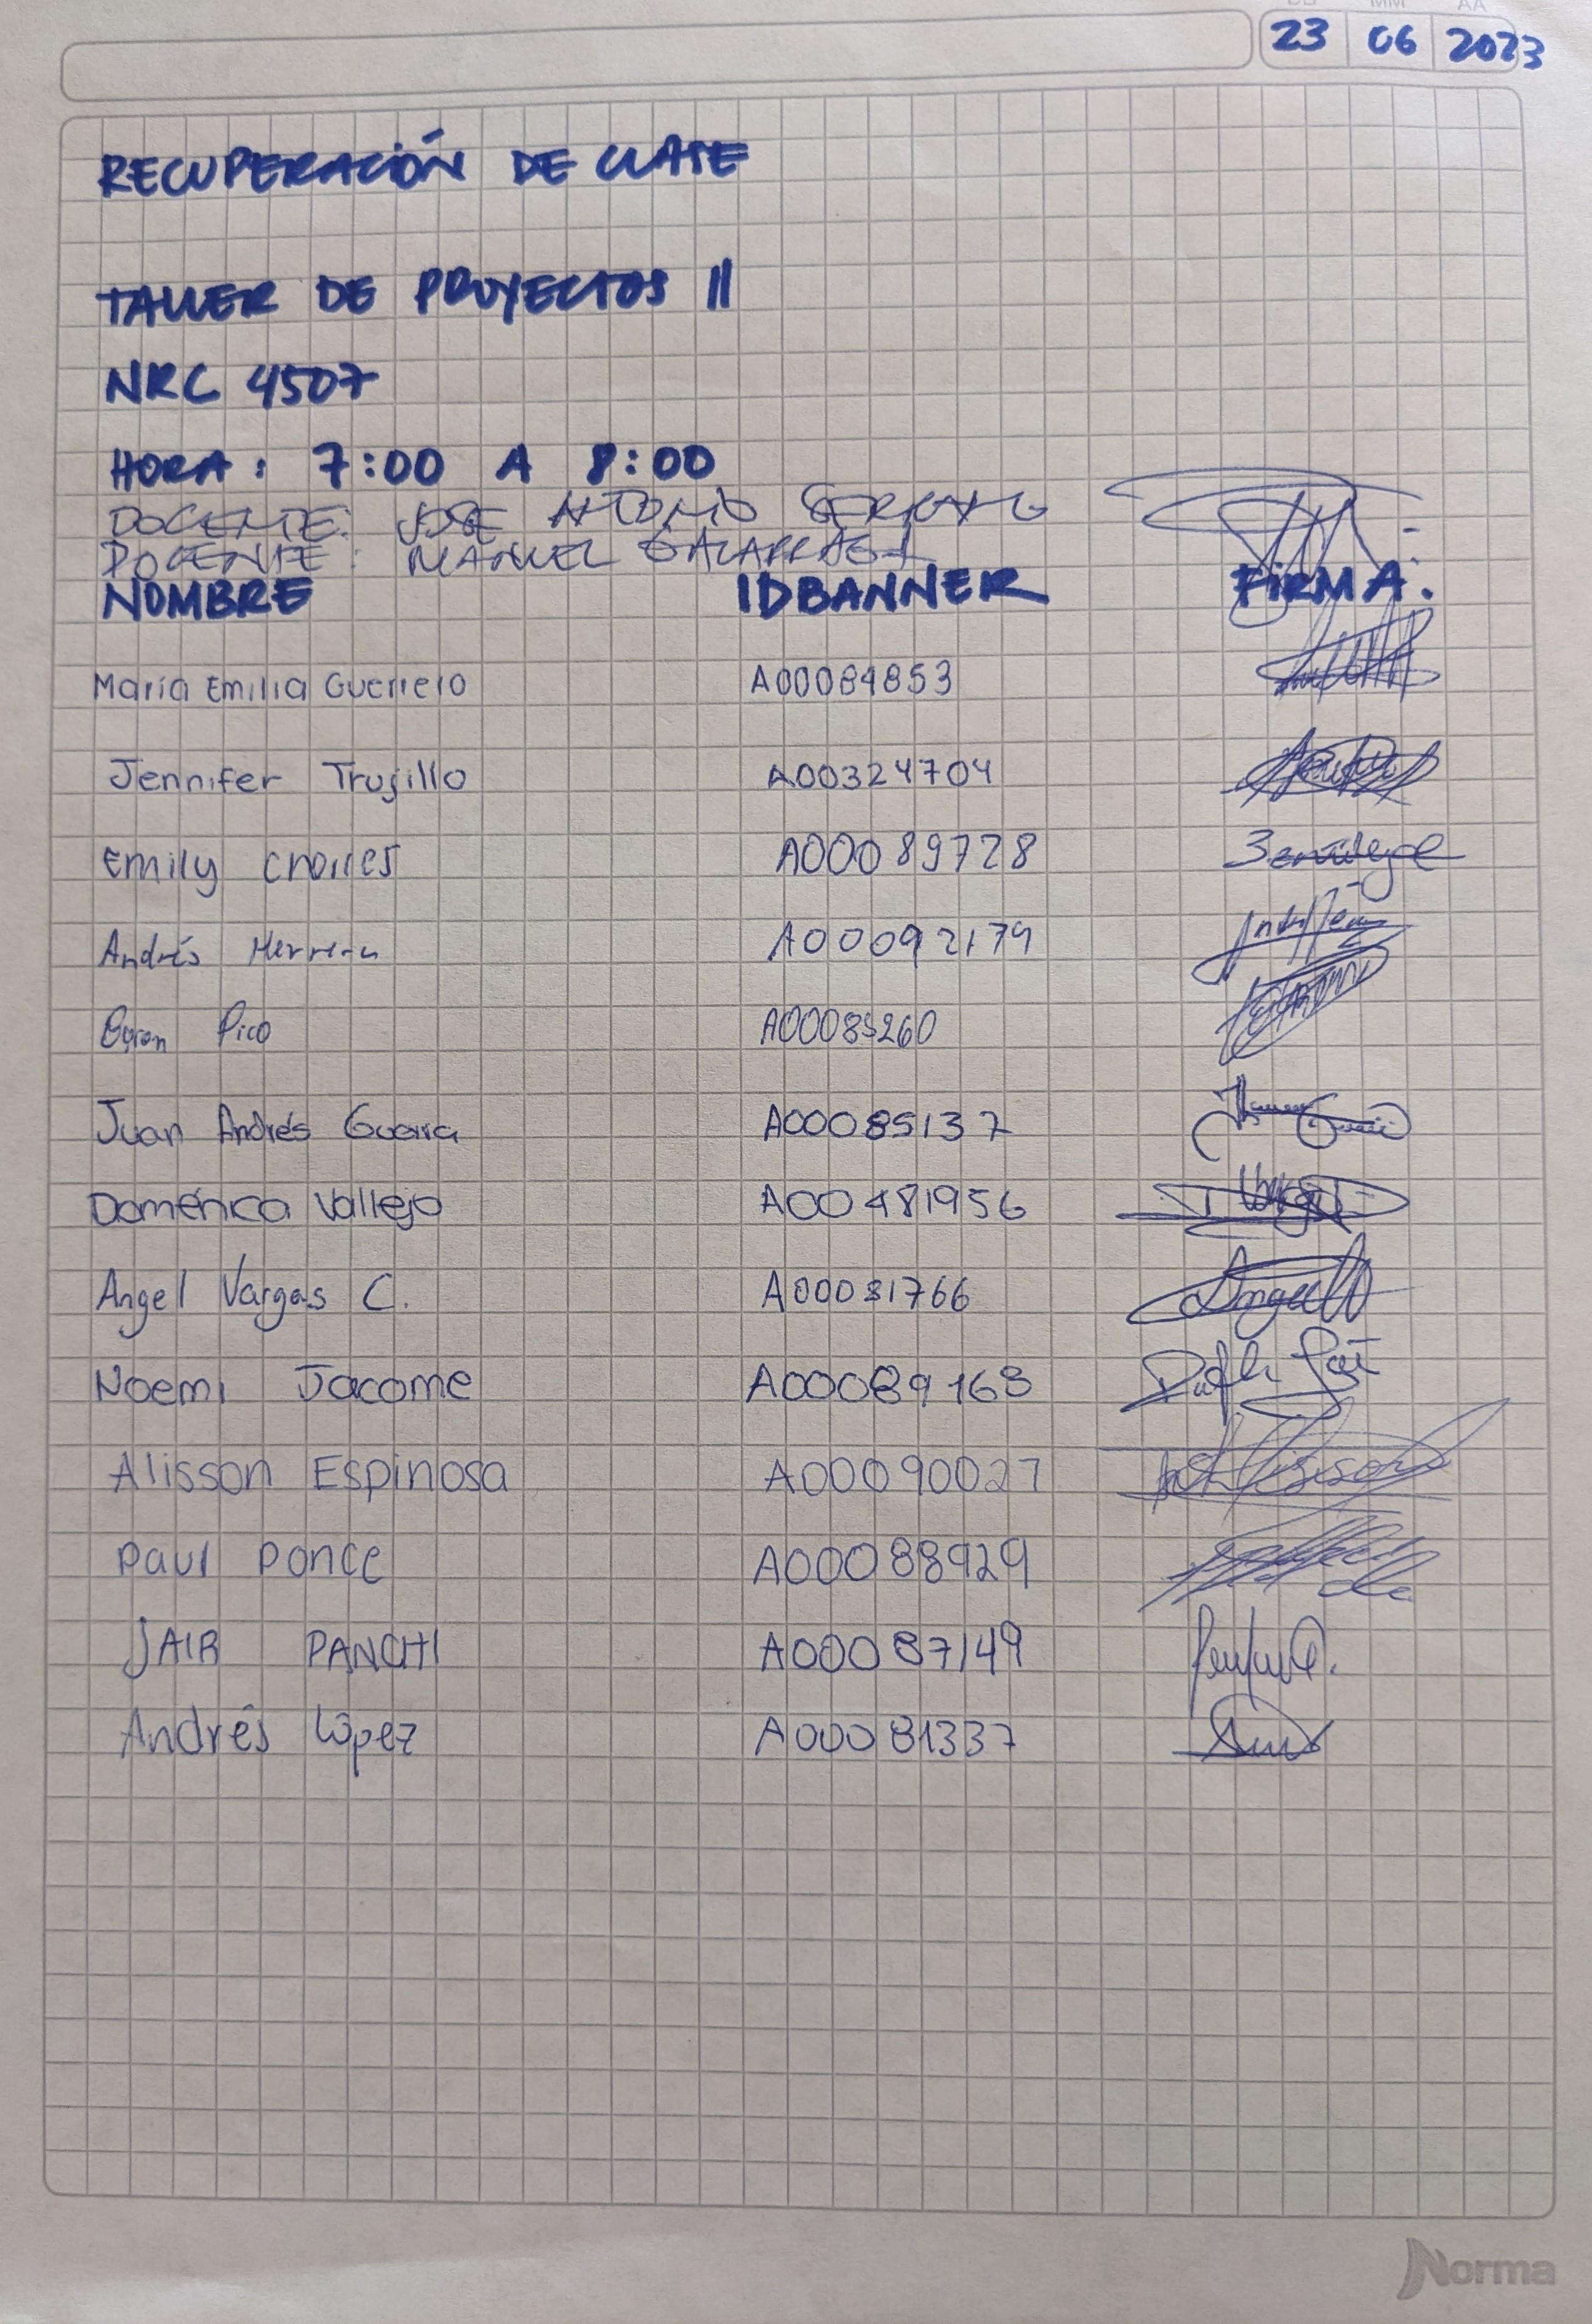 DD MM AA
23 06 2023
RECUPERACIÓN DE CLASE
TALLER DE PROYECTOS II
NRC 4507
HORA: 7:00 A 8:00
DOCENTE: JOSE ANTONIO SERRANO
DOCENTE: MANUEL GALARRAGA
NOMBRE IDBANNER FIRMA:
María Emilia Guerrero A00084853
Jennifer Trujillo A00324704
Emily A00089728
Andrés Herrera A00092179
Pico A00085260
Juan Andrés Guerra A00085137
Doménica Vallejo A00481956
Angel Vargas C. A00081766
Noemi Jacome A00089168
Alisson Espinosa A00090027
Paul Ponce A00088929
JAIR PANCHI A00087149
Andrés López A00081337
Norma